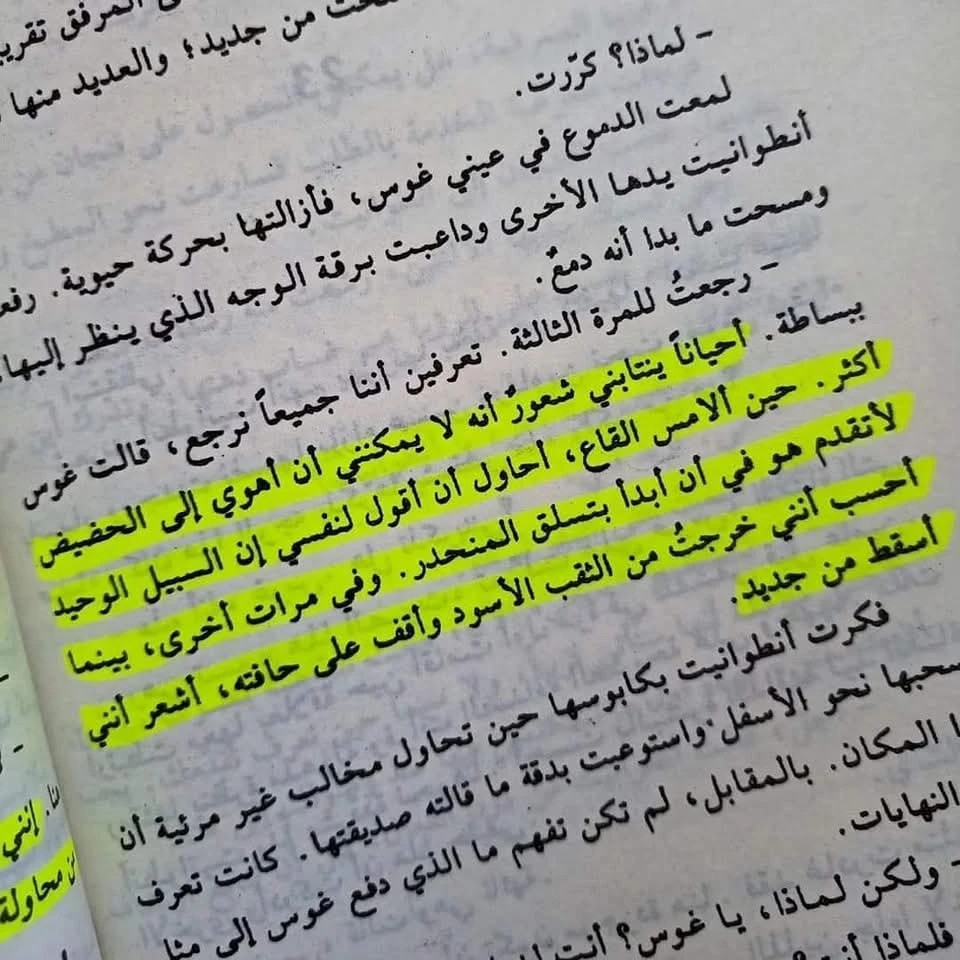 المرفق تقريبا
من جديد؛ والعديد منها
- لماذا؟ كرّرت.
لمعت الدموع في عيني غوس، فأزالتها بحركة حيوية. رفعت
أنطوانيت يدها الأخرى وداعبت برقة الوجه الذي ينظر إليها،
ومسحت ما بدا أنه دمعٌ.
- رجعتُ للمرة الثالثة. تعرفين أننا جميعاً نرجع، قالت غوس
ببساطة. أحياناً ينتابني شعورٌ أنه لا يمكنني أن أهوي إلى الحضيض
أكثر. حين ألامس القاع، أحاول أن أقول لنفسي إن السبيل الوحيد
لأتقدم هو في أن أبدأ بتسلق المنحدر. وفي مرات أخرى، بينما
أحسب أنني خرجتُ من الثقب الأسود وأقف على حافته، أشعر أنني
أسقط من جديد.
فكرت أنطوانيت بكابوسها حين تحاول مخالب غير مرئية أن
نحو الأسفل واستوعبت بدقة ما قالته صديقتها. كانت تعرف
المكان. بالمقابل، لم تكن تفهم ما الذي دفع غوس إلى
النهايات.
- ولكن لماذا، يا غوس؟ أنت
فلماذا
إنني
محاولة